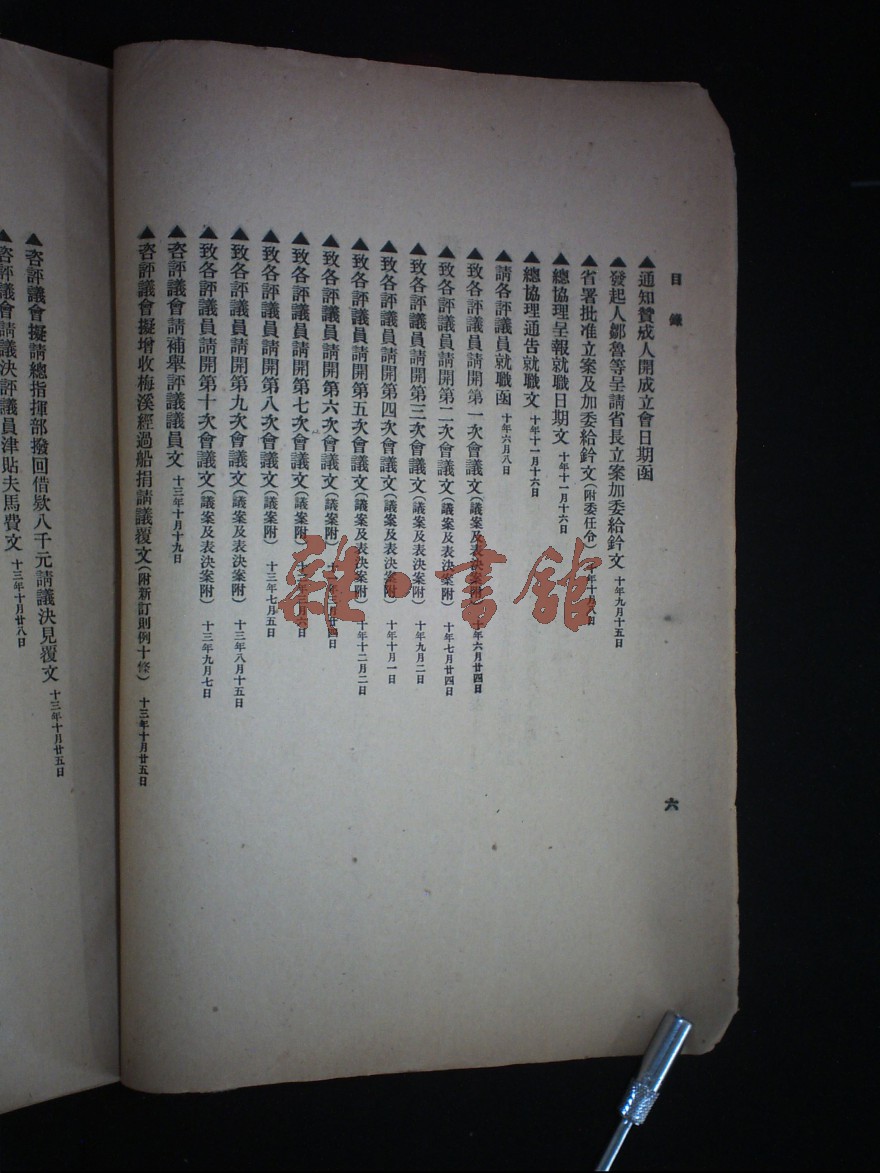 目錄
六
▲通知贊成人開成立會日期函
▲發起人鄒魯等呈請省長立案加委給鈐文 十年九月十五日
▲省署批准立案及加委給鈐文(附委任令) 十年十月八日
▲總協理呈報就職日期文 十年十一月十六日
▲總協理通告就職文 十年十一月十六日
▲請各評議員就職函 十年六月八日
▲致各評議員請開第一次會議文(議案及表決案附) 十年六月廿四日
▲致各評議員請開第二次會議文(議案及表決案附) 十年七月廿四日
▲致各評議員請開第三次會議文(議案及表決案附) 十年九月二日
▲致各評議員請開第四次會議文(議案及表決案附) 十年十月一日
▲致各評議員請開第五次會議文(議案及表決案附) 十年十二月二日
▲致各評議員請開第六次會議文(議案附) 廿四日
▲致各評議員請開第七次會議文(議案附) 十三年 六日
▲致各評議員請開第八次會議文(議案附) 十三年七月五日
▲致各評議員請開第九次會議文(議案及表決案附) 十三年八月十五日
▲致各評議員請開第十次會議文(議案及表決案附) 十三年九月七日
▲咨評議會請補舉評議議員文 十三年十月十九日
▲咨評議會擬增收梅溪經過船捐請議覆文(附新訂則例十條) 十三年十月廿五日
▲咨評議會擬請總指揮部撥回借欵八千元請議決見覆文 十三年十月廿五日
▲咨評議會請議決評議員津貼夫馬費文 十三年十月廿八日
雜·書館